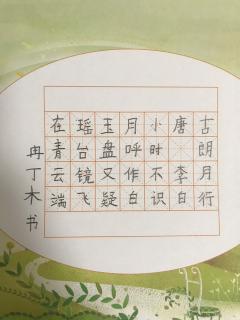 古朗月行
唐 李白
小时不识
月呼作白
玉盘又疑
瑶台镜飞
在青云端
冉丁木书